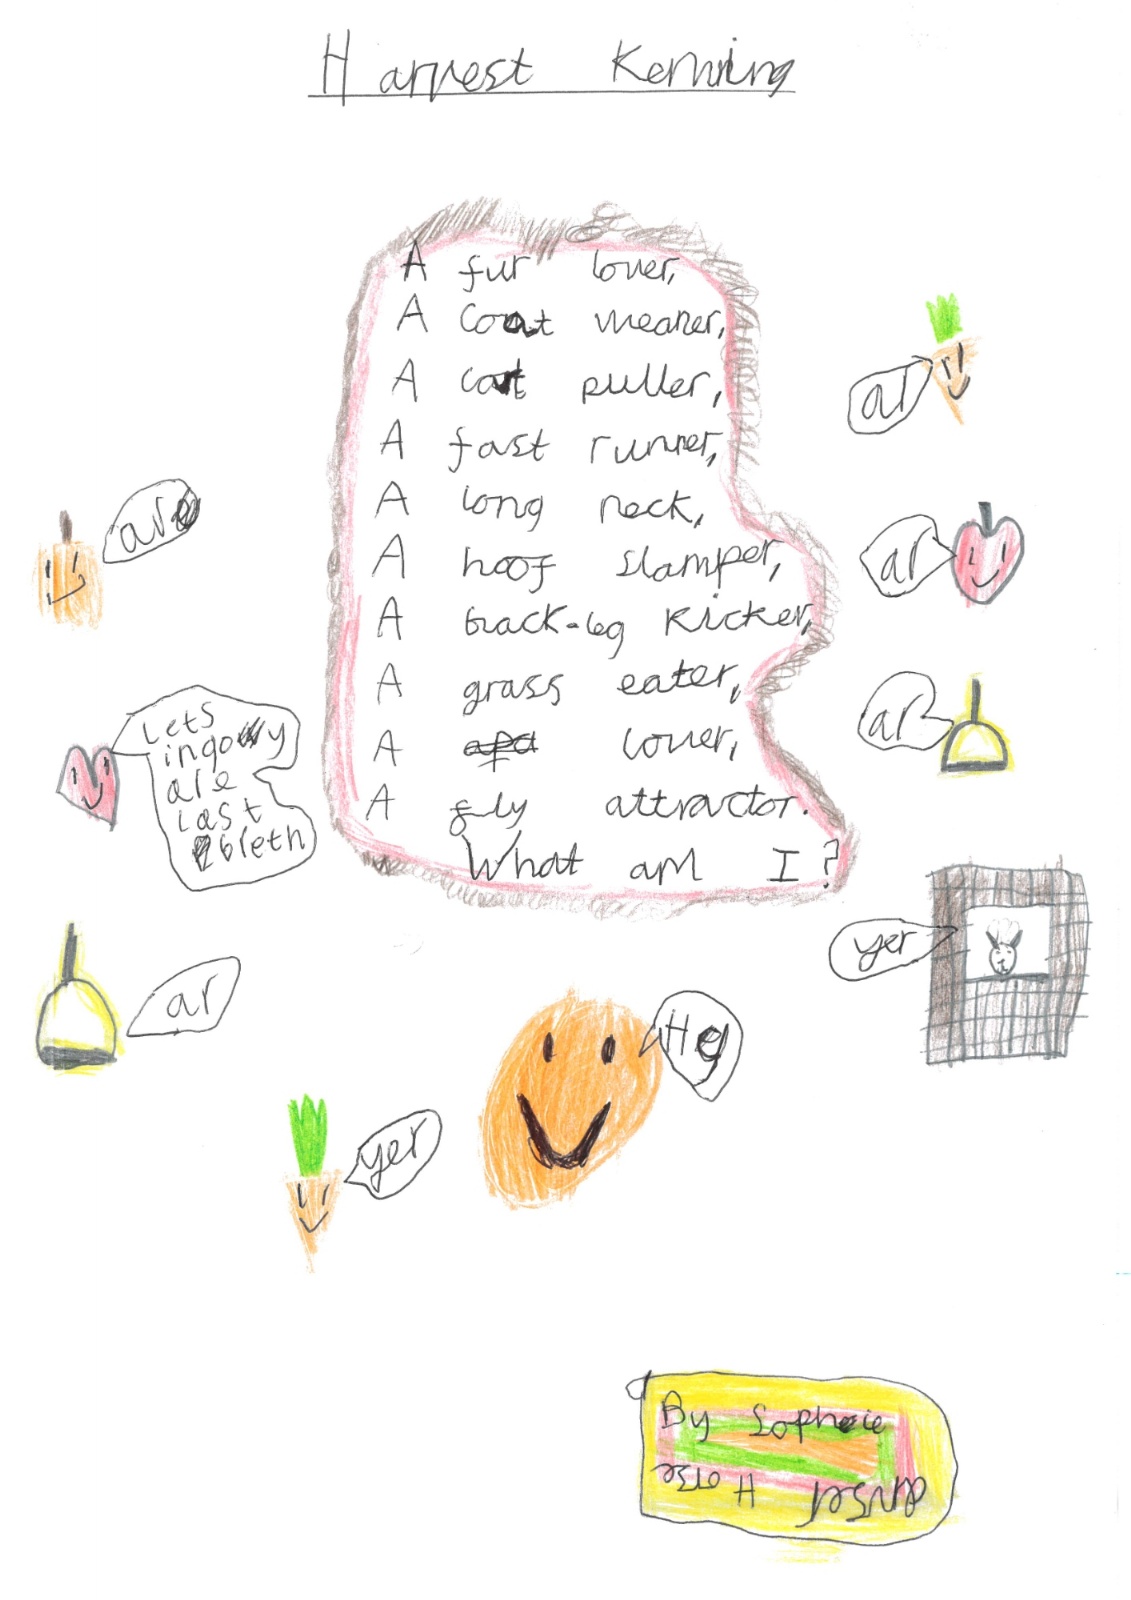 Harvest Kenning
A fur lover,
A coat wearer,
A cart puller,
A fast runner,
A long neck,
A hoof slamper,
A back-leg kicker,
A grass eater,
A lover,
A fly attractor.
What am I?
ar
are
ar
ar
Lets
ingoy
are
last
breth
yer
ar
Hey
yer
By Sophie
anser Horse